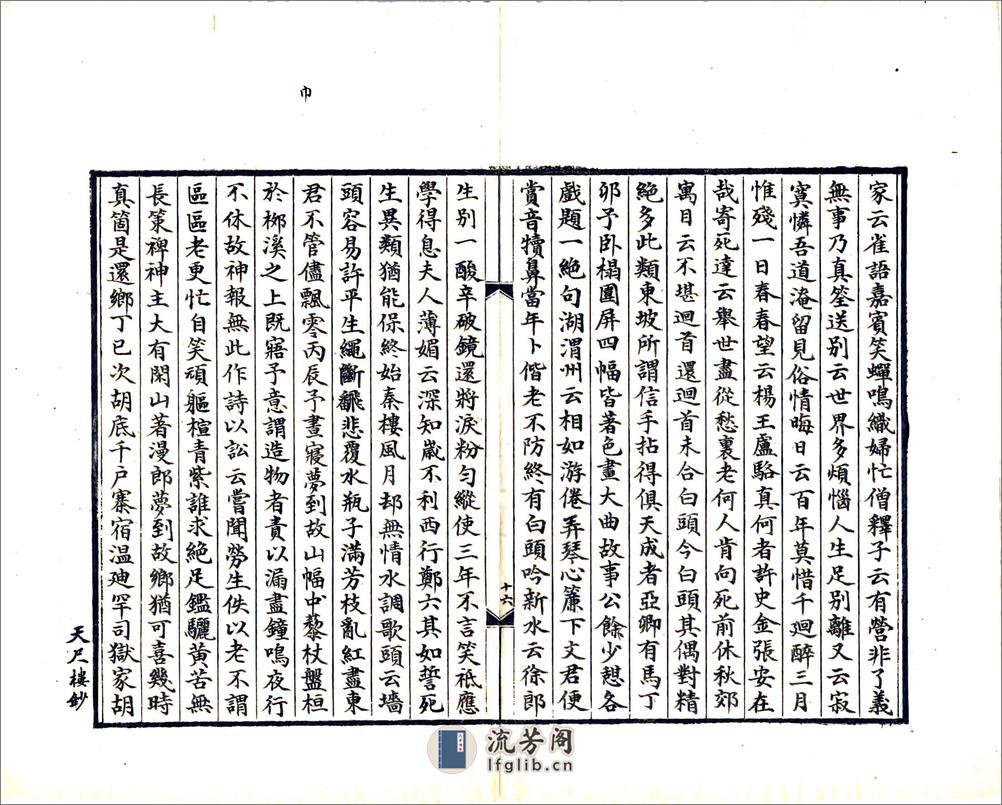 巾
家云雀語嘉賓笑蟬鳴織婦忙僧釋子云有營非了義
無事乃真筌送別云世界多煩惱人生足別離又云寂
寞憐吾道淹留見俗情晦日云百年莫惜千迴醉三月
惟殘一日春春望云楊王盧駱真何者許史金張安在
哉寄死達云舉世盡從愁裏老何人肯向死前休秋郊
寓目云不堪迴首還迴首未合白頭今白頭其偶對精
絶多此類東坡所謂信手拈得俱天成者亞卿有馬丁
卯予卧榻圍屏四幅皆著色畫大曲故事公餘少憇各
戲題一絶句湖渭州云相如游倦弄琴心簾下文君便
賞音犢鼻當年卜偕老不防終有白頭吟新水云徐郎
十六
生別一酸辛破鏡還將淚粉勻縱使三年不言笑祗應
學得息夫人薄媚云深知崴不利西行鄭六其如誓死
生異類猶能保終始秦樓風月却無情水調歌頭云墻
頭容易許平生繩斷翻悲覆水瓶子滿芳枝亂紅盡東
君不管儘飄零丙辰予晝寢夢到故山幅中藜杖盤桓
於栁溪之上既寤予意謂造物者責以漏盡鐘鳴夜行
不休故神報無此作詩以訟云嘗聞勞生佚以老不謂
區區老更忙自笑頑軀楦青紫誰求絶足鑑驪黃苦無
長策裨神主大有閑山著漫郎夢到故鄉猶可喜幾時
真箇是還鄉丁巳次胡底千户寨宿温廸罕司獄家胡
天尺樓鈔
流芳阁
lfglib.cn